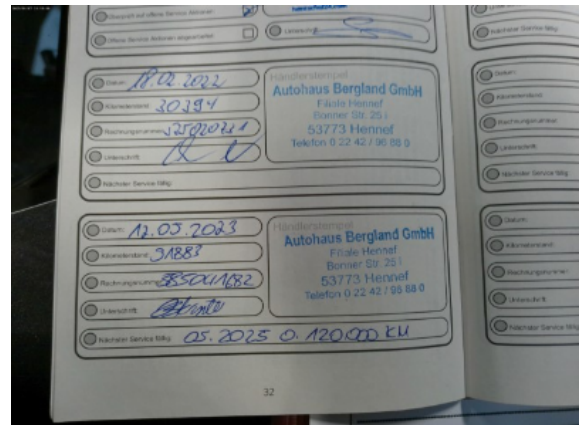 Überprüft auf offene Service Aktionen
Offene Service Aktionen abgearbeitet
Unterschrift
Datum: 18.02.2022
Kilometerstand: 30394
Rechnungsnummer:
Unterschrift:
Nächster Service fällig:
Händlerstempel
Autohaus Bergland GmbH
Filiale Hennef
Bonner Str. 25 i
53773 Hennef
Telefon 0 22 42 / 96 88 0
Datum: 12.05.2023
Kilometerstand: 91883
Rechnungsnummer: 585041682
Unterschrift:
Nächster Service fällig: 05.2025 o. 120.000 KM
Händlerstempel
Autohaus Bergland GmbH
Filiale Hennef
Bonner Str. 25 i
53773 Hennef
Telefon 0 22 42 / 96 88 0
32
Nächster Service fällig:
Datum:
Kilometerstand:
Rechnungsnummer:
Unterschrift:
Nächster Service fällig
Datum:
Kilometerstand:
Rechnungsnummer:
Unterschrift:
Nächster Service fällig